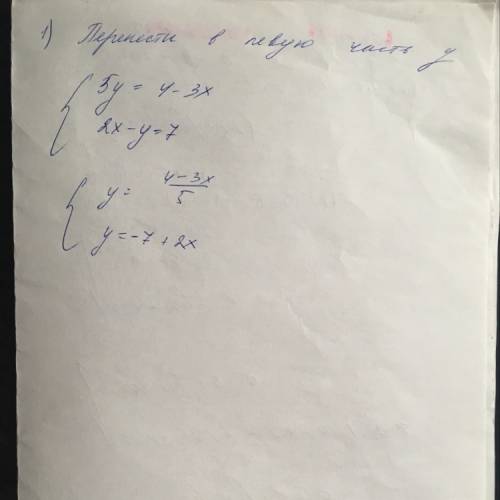 1) Перенести в левую часть y
5y = 4 - 3x
2x - y = 7
y = \frac{4 - 3x}{5}
y = -7 + 2x